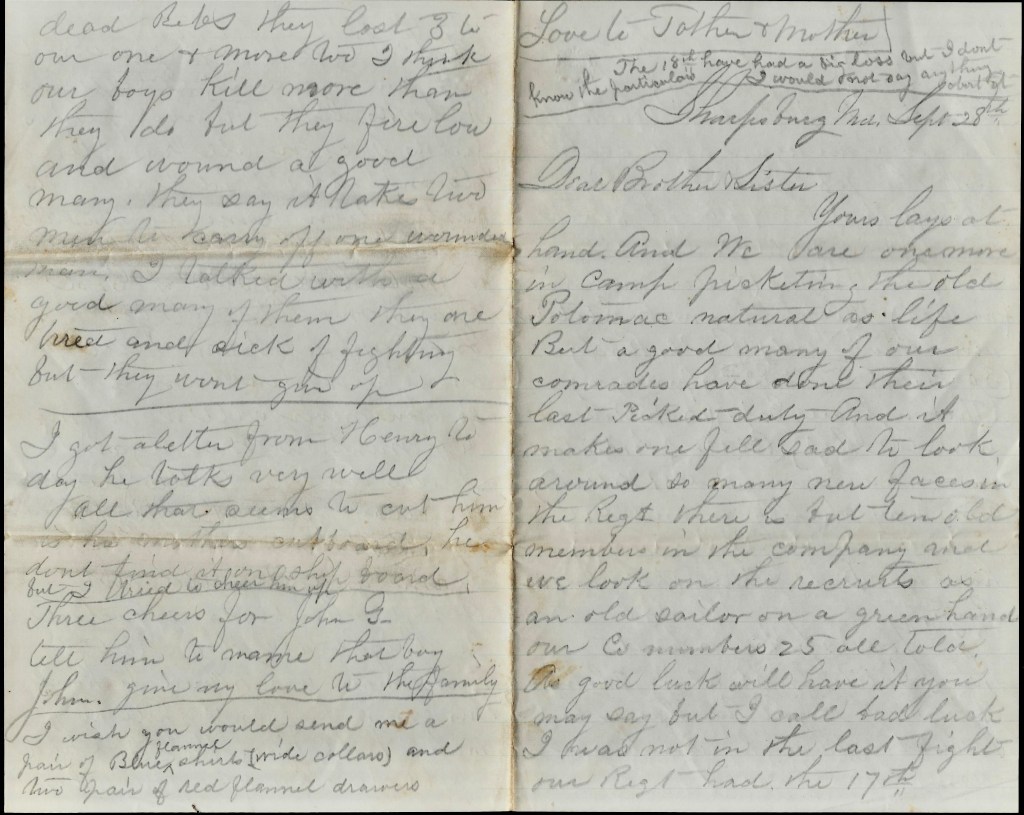 Love to Father & Mother
The 18th have had a big loss but I dont
know the particulars I would not say anything
about it
Sharpsburg Md. Sept 28th
Dear Brother & Sister
Yours lays at
hand. And We are one more
in camp picketing the old
Potomac natural as life
But a good many of our
comrades have done their
last Picked duty And it
makes one fell sad to look
around so many new faces in
the Regt there is but ten old
members in the company and
we look on the recruits as
an old sailor on a green hand
our Co numbers 25 all told.
As good luck will have it you
may say but I call bad luck
I was not in the last fight
our Regt had the 17th
dead Rebs they lost 3 to
our one & more too I think
our boys kill more than
they do but they fire low
and wound a good
many. they say it takes two
men to carry off one wounded
man. I talked with a
good many of them they are
tired and sick of fighting
but they wont give up
I got a letter from Henry to
day he totks very well
all that seems to cut him
is his mothers cutboard, he
dont find it on ship board.
but I tried to cheer him up
Three cheers for John G
tell him to name that boy
John. give my love to the family
I wish you would send me a
pair of Blue flannel shirts [wide collars] and
two pair of red flannel drawers